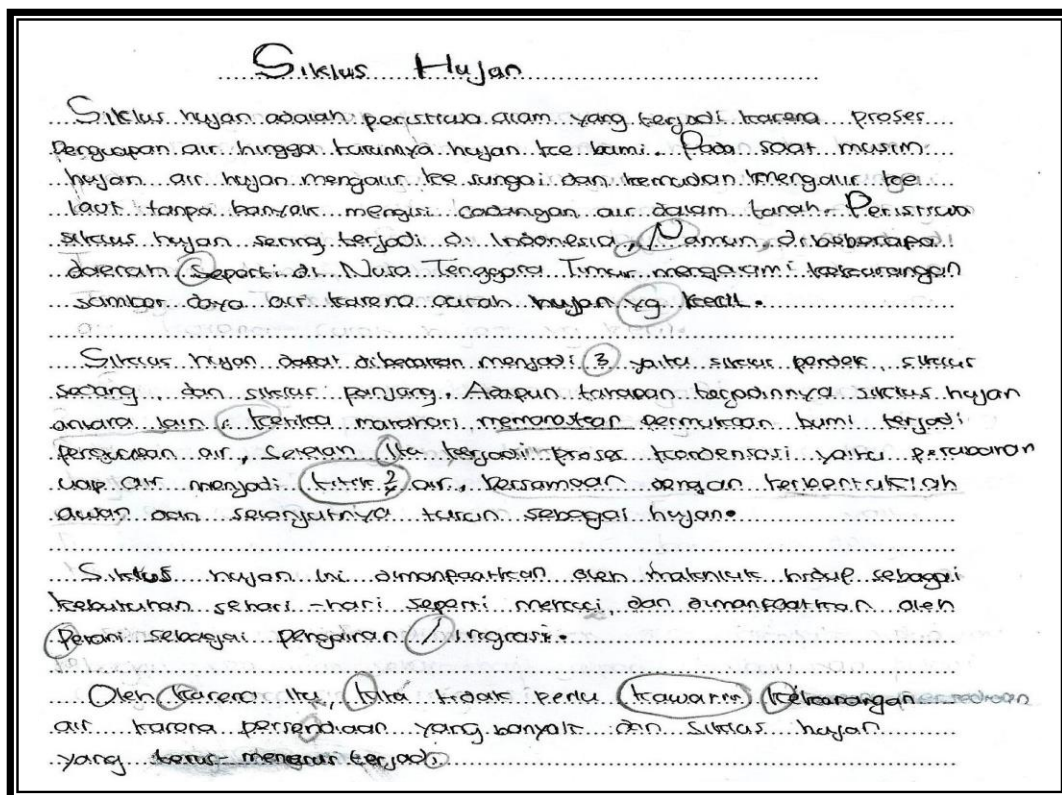 Siklus Hujan
Siklus hujan adalah peristiwa alam yang terjadi karena proses
Penguapan air hingga turunnya hujan ke bumi. Pada saat musim
hujan air hujan mengalir ke sungai dan kemudian mengalir ke
laut tanpa banyak mengisi cadangan air dalam tanah. Peristiwa
siklus hujan sering terjadi di Indonesia, Namun, di beberapa
daerah Seperti di Nusa Tenggara Timur mengalami kekurangan
sumber daya air karena curah hujan yg kecil.
Siklus hujan dapat dibedakan menjadi 3 yaitu siklus pendek, siklus
sedang, dan siklus panjang. Adapun tahapan terjadinnya siklus hujan
antara lain : ketika matahari memanaskan permukaan bumi terjadi
penguapan air, Setelah Itu terjadi proses kondensasi yaitu perubahan
uap air menjadi titik2 air, bersamaan dengan terbentuklah
awan dan selanjutnya turun sebagai hujan.
Siklus hujan ini dimanfaatkan oleh makhluk hidup sebagai
kebutuhan sehari-hari seperti mencuci, dan dimanfaatkan oleh
Petani sebagai pengairan / ingrasi.
Oleh karena Itu, kita tidak perlu kawatir kekurangan
air karena persendiaan yang banyak dan siklus hujan
yang terus-menerus terjadi.